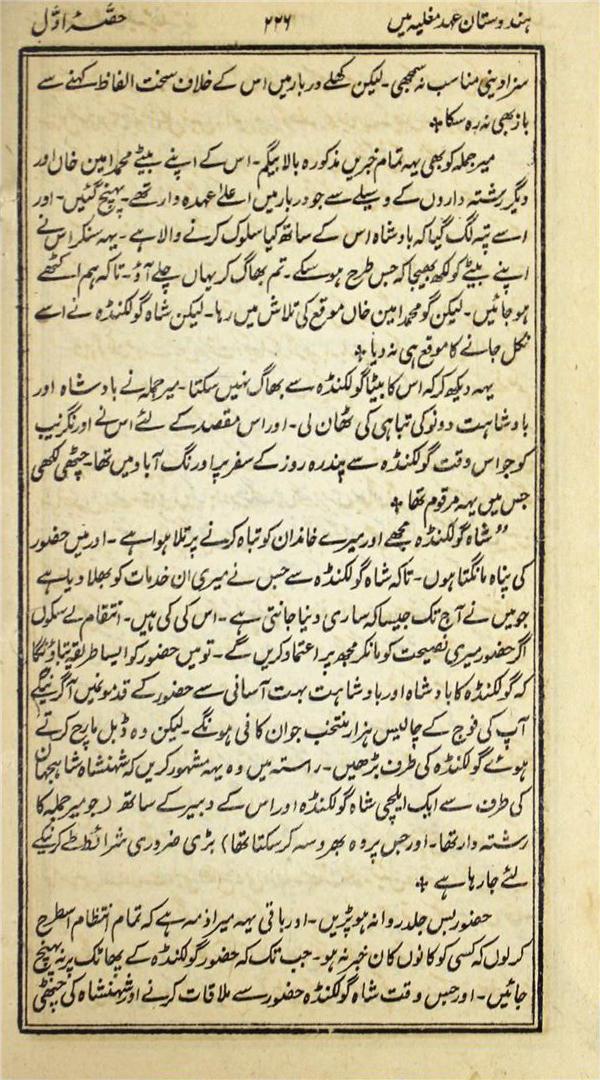 ہندوستان عہد مغلیہ میں ۲۲۶ حصّہ اوّل
سزا دینی مناسب نہ سمجھی۔ لیکن کھلے دربار میں اس کے خلاف سخت الفاظ کہنے سے
باز بھی نہ رہ سکا ٭
میر جملہ کو بھی یہہ تمام خبریں مذکورہ بالا بیگم۔ اس کے اپنے بیٹے محمد امین خاں اور
دیگر رشتہ داروں کے وسیلے سے جو دربار میں اعلےٰ عہدہ دار تھے۔ پہنچ گئیں۔ اور
اسے پتہ لگ گیا کہ بادشاہ اس کے ساتھ کیا سلوک کرنے والا ہے۔ یہہ سنکر اس نے
اپنے بیٹے کو لکھ بھیجا کہ جس طرح ہو سکے۔ تم بھاگ کر یہاں چلے آؤ۔ تاکہ ہم اکٹھے
ہو جائیں۔ لیکن گو محمد امین خاں موقع کی تلاش میں رہا۔ لیکن شاہ گولکنڈہ نے اسے
نکل جانے کا موقع ہی نہ دیا ٭
یہہ دیکھ کر کہ اس کا بیٹا گولکنڈہ سے بھاگ نہیں سکتا۔ میر جملہ نے بادشاہ اور
بادشاہت دونو کی تباہی کی ٹھان لی۔ اور اس مقصد کے لئے اس نے اورنگزیب
کو جو اس وقت گولکنڈہ سے پندرہ روز کے سفر پر اورنگ آباد میں تھا۔ چٹھی لکھی
جس میں یہہ مرقوم تھا ٭
”شاہ گولکنڈہ مجھے اور میرے خاندان کو تباہ کرنے پر تلا ہوا ہے۔ اور میں حضور
کی پناہ مانگتا ہوں۔ تاکہ شاہ گولکنڈہ سے جس نے میری ان خدمات کو بھلا دیا ہے
جو میں نے آج تک جیسا کہ ساری دنیا جانتی ہے۔ اس کی کی ہیں۔ انتقام لے سکوں
اگر حضور میری نصیحت کو مانکر مجھ پر اعتماد کریں گے۔ تو میں حضور کو ایسا طریقہ بتاؤنگا
کہ گولکنڈہ کا بادشاہ اور بادشاہت بہت آسانی سے حضور کے قدمونمیں آ گرینگے
آپ کی فوج کے چالیس ہزار منتخب جوان کافی ہونگے۔ لیکن وہ ڈبل مارچ کرتے
ہوئے گولکنڈہ کی طرف بڑھیں۔ راستہ میں وہ یہہ مشہور کریں کہ شہنشاہ شاہجہان
کی طرف سے ایک ایلچی شاہ گولکنڈہ اور اس کے دبیر کے ساتھ (جو میر جملہ کا
رشتہ دار تھا۔ اور جس پر وہ بھروسہ کر سکتا تھا) بڑی ضروری شرائط طے کرنیکے
لئے جا رہا ہے ٭
حضور بس جلد روانہ ہو پڑیں۔ اور باقی یہہ میرا ذمہ ہے کہ تمام انتظام اسطرح
کر لوں کہ کسی کو کانوں کان خبر نہ ہو۔ جب تک کہ حضور گولکنڈہ کے پھاٹک پر نہ پہنچ
جائیں۔ اور جس وقت شاہ گولکنڈہ حضور سے ملاقات کرنے اور شہنشاہ کی چٹھی